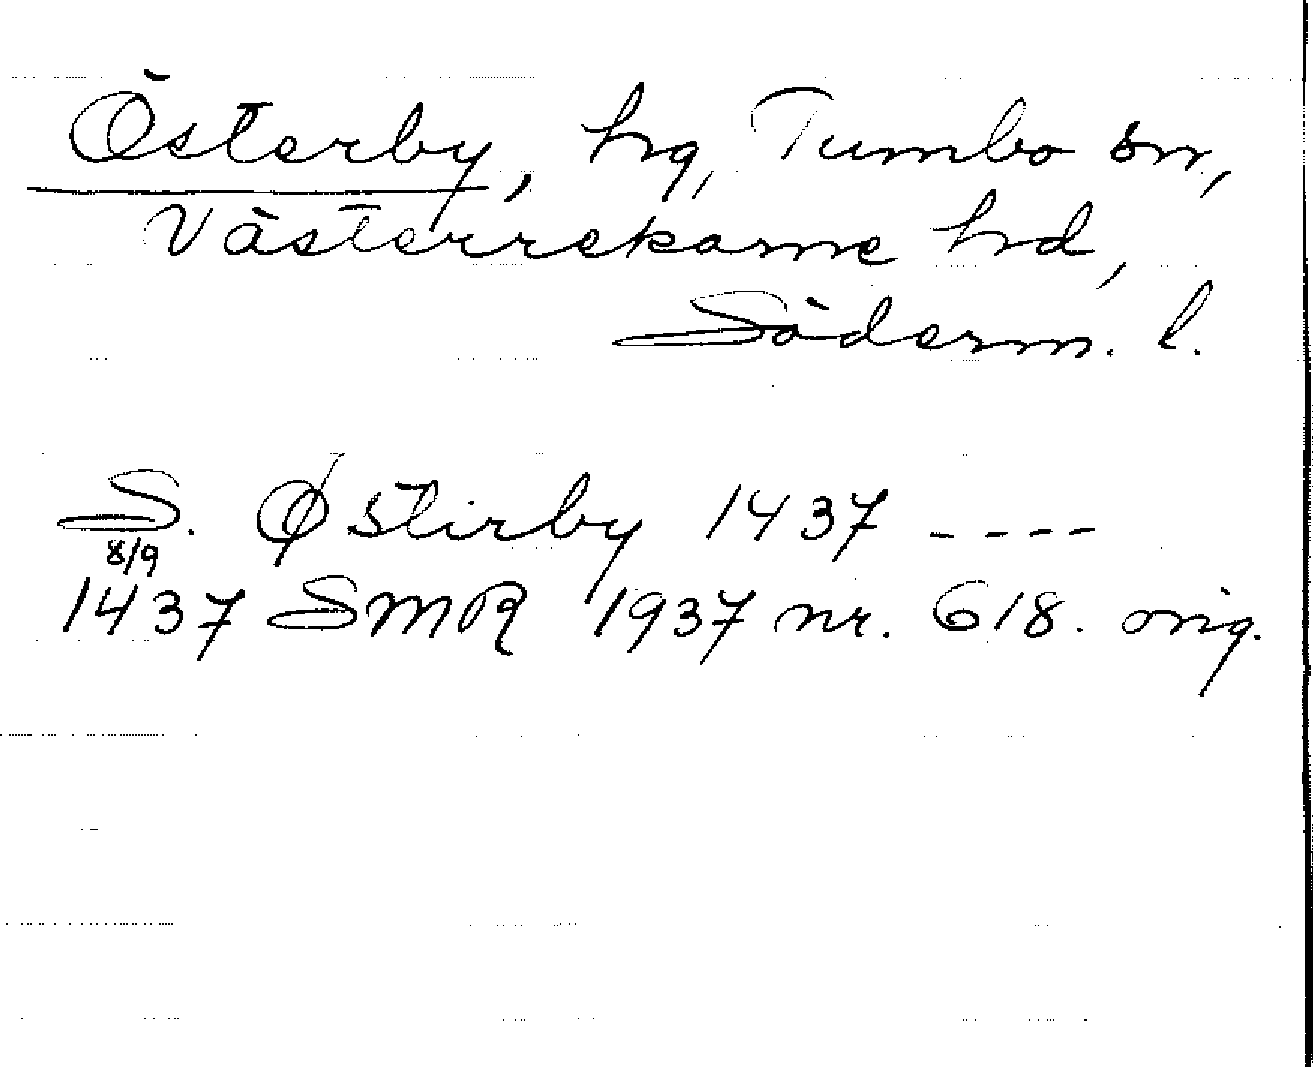 Österby, hg, Tumbo sn,
Västerrekarne hd,
Söderm. l.
S. Østirby 1437 ----
8/9
1437 SMR 1937 nr. 618. orig.